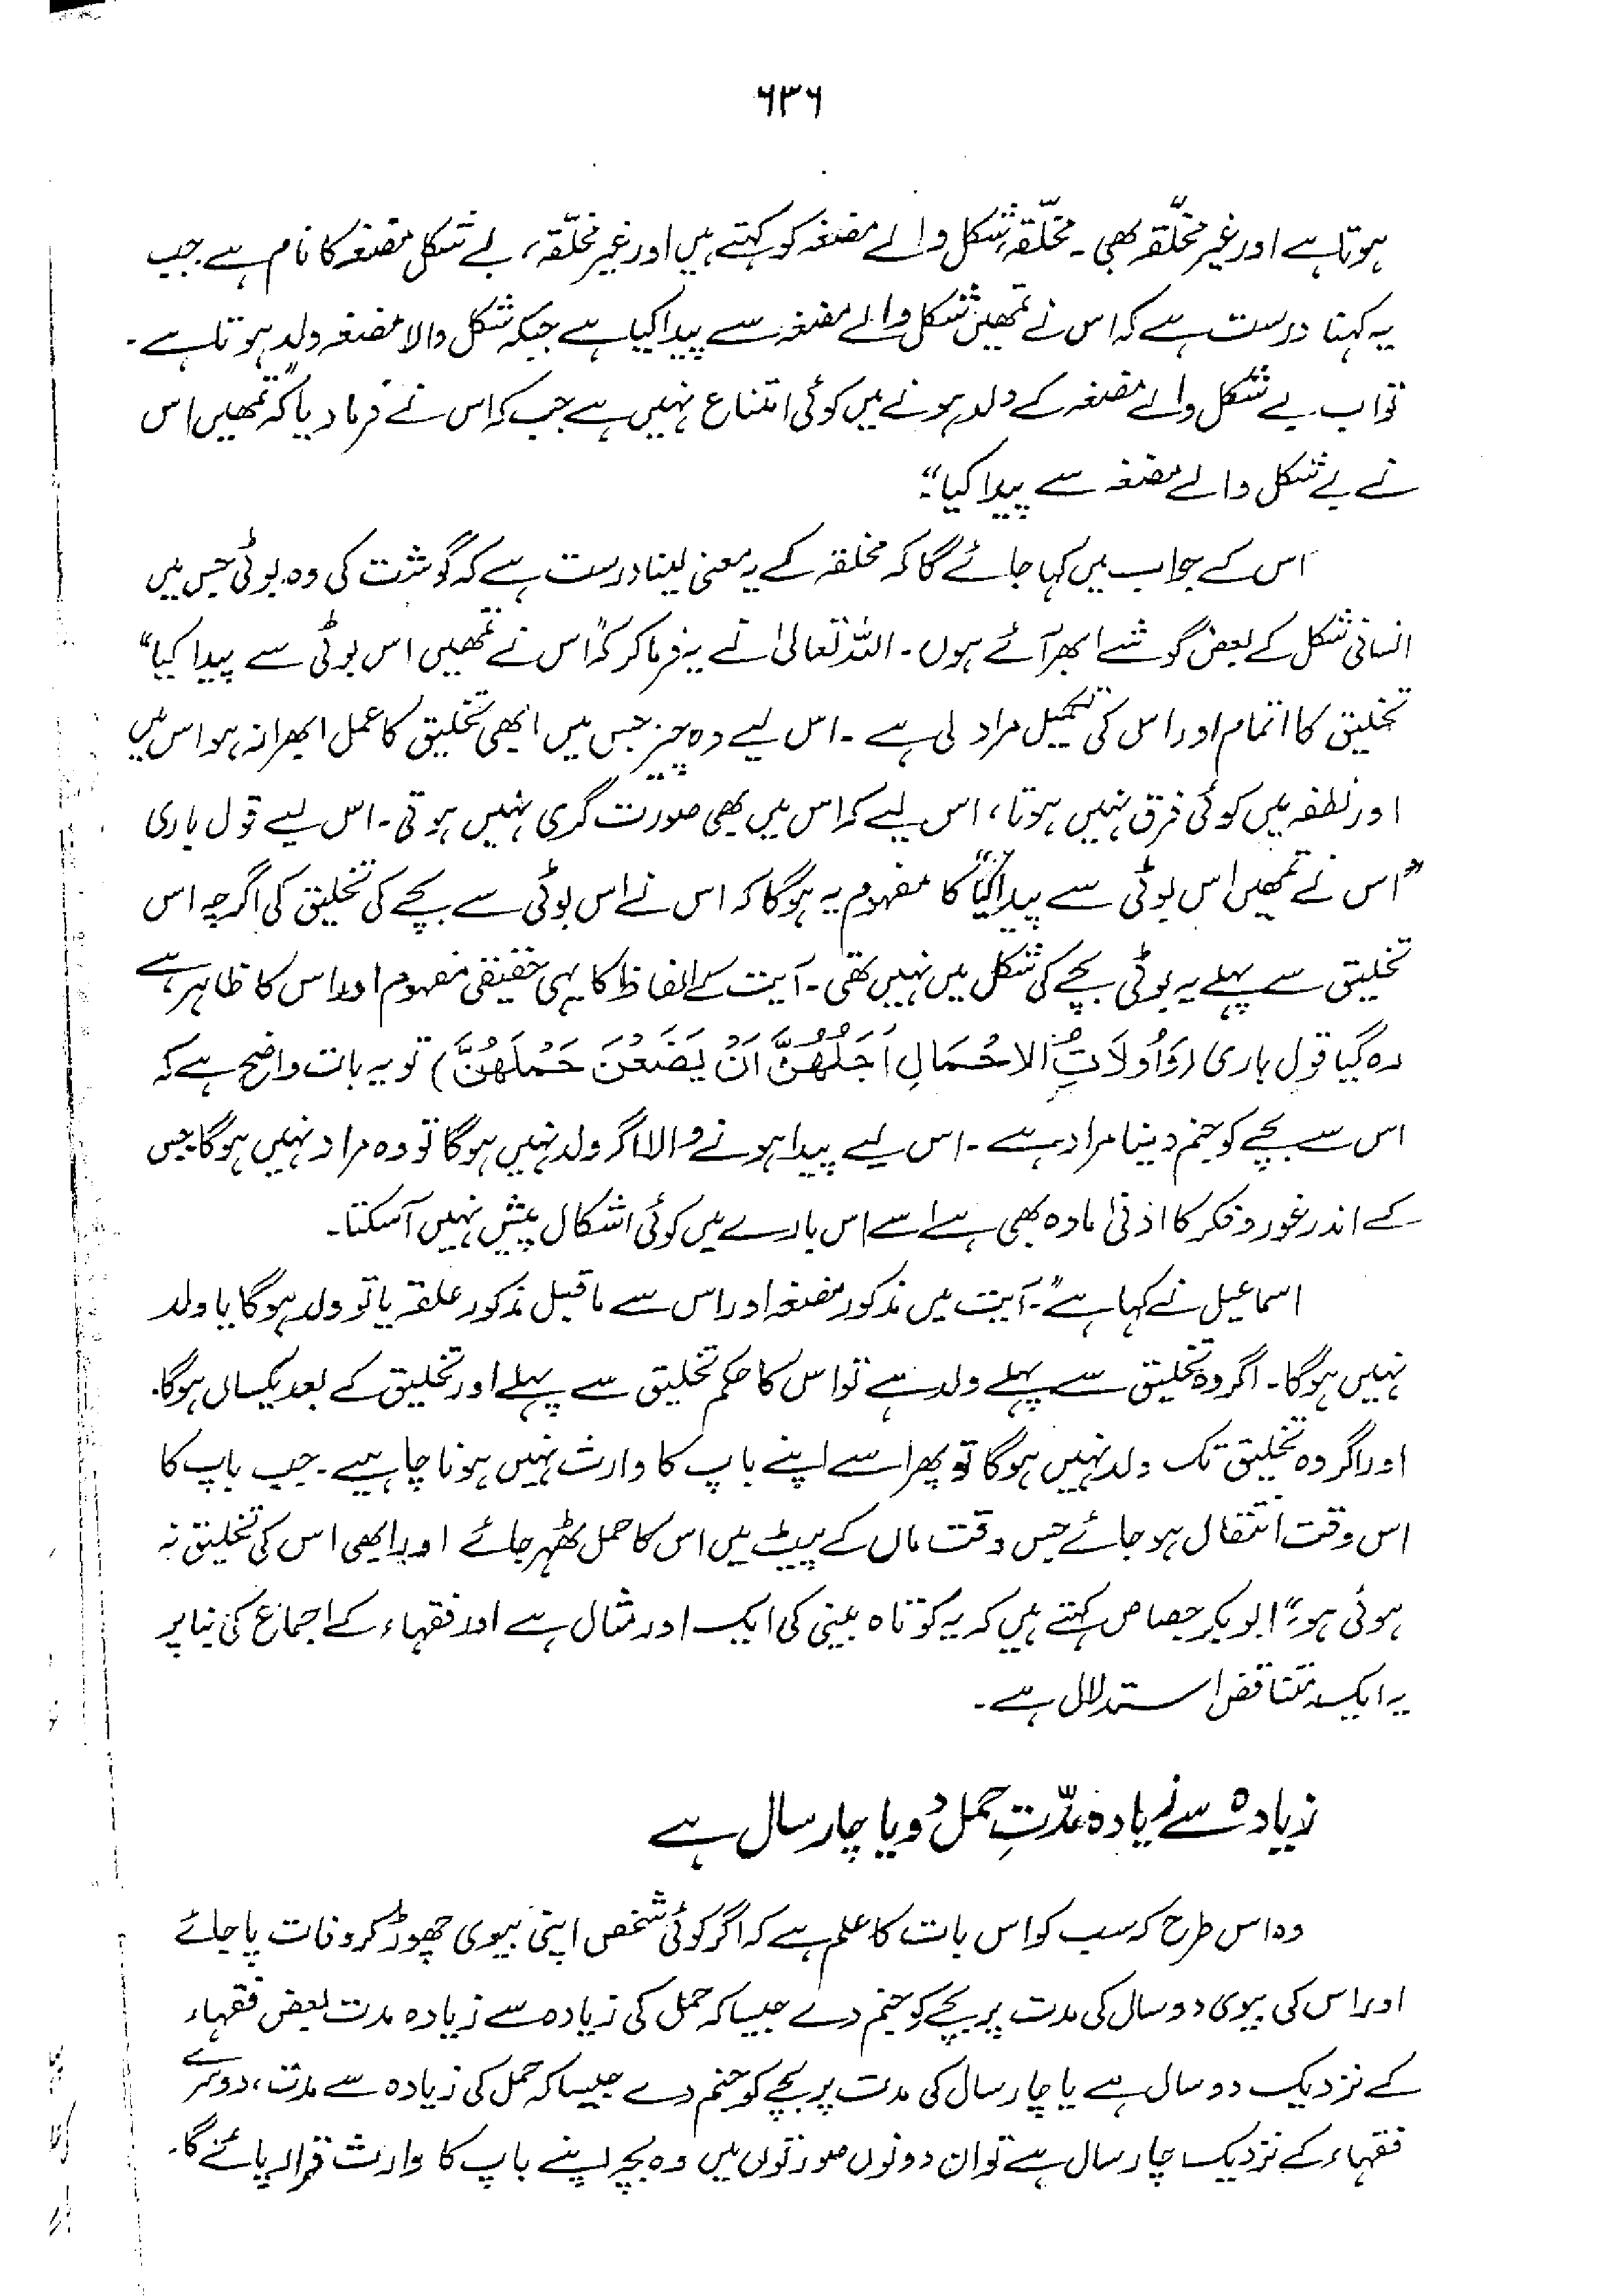 ۶۳۶
ہوتا ہے اور غیر مخلّقہ بھی۔ مخلّقہ، شکل والے مضغہ کو کہتے ہیں اور غیر مخلّقہ، بے شکل مضغہ کا نام ہے جب
یہ کہنا درست ہے کہ اس نے تمھیں شکل والے مضغہ سے پیدا کیا ہے جبکہ شکل والا مضغہ ولد ہوتا ہے۔
تو اب بے شکل والے مضغہ کے ولد ہونے میں کوئی امتناع نہیں ہے جب کہ اس نے فرما دیا کہ "تمھیں اس
نے بے شکل والے مضغہ سے پیدا کیا"۔
اس کے جواب میں کہا جائے گا کہ مخلقہ کے یہ معنی لینا درست ہے کہ گوشت کی وہ بوٹی جس میں
انسانی شکل کے بعض گوشے ابھر آئے ہوں۔ اللہ تعالیٰ نے یہ فرما کر کہ "اس نے تمھیں اس بوٹی سے پیدا کیا"
تخلیق کا اتمام اور اس کی تکمیل مراد لی ہے۔ اس لیے وہ چیز جس میں ابھی تخلیق کا عمل ابھرا نہ ہو اس میں
اور نطفہ میں کوئی فرق نہیں ہوتا، اس لیے کہ اس میں بھی صورت گری نہیں ہوتی۔ اس لیے قول باری
"اس نے تمھیں اس بوٹی سے پیدا کیا" کا مفہوم یہ ہوگا کہ اس نے اس بوٹی سے بچے کی تخلیق کی اگرچہ اس
تخلیق سے پہلے یہ بوٹی بچے کی شکل میں نہیں تھی۔ آیت کے الفاظ کا یہی حقیقی مفہوم اور اس کا ظاہر ہے
رہ گیا قول باری (وَاُولَاتُ الاَحْمَالِ اَجَلُهُنَّ اَنْ يَضَعْنَ حَمْلَهُنَّ) تو یہ بات واضح ہے کہ
اس سے بچے کو جنم دینا مراد ہے۔ اس لیے پیدا ہونے والا اگر ولد نہیں ہوگا تو وہ مراد نہیں ہوگا۔ جس
کے اندر غور و فکر کا ادنیٰ مادہ بھی ہے اسے اس بارے میں کوئی اشکال پیش نہیں آسکتا۔
اسماعیل نے کہا ہے "۔ آیت میں مذکور مضغہ اور اس سے ماقبل مذکور علقہ یا تو ولد ہوگا یا ولد
نہیں ہوگا۔ اگر وہ تخلیق سے پہلے ولد ہے تو اس کا حکم تخلیق سے پہلے اور تخلیق کے بعد یکساں ہوگا۔
اور اگر وہ تخلیق تک ولد نہیں ہوگا تو پھر اسے اپنے باپ کا وارث نہیں ہونا چاہیے۔ جب باپ کا
اس وقت انتقال ہو جائے جس وقت ماں کے پیٹ میں اس کا حمل ٹھہر جائے اور ابھی اس کی تخلیق نہ
ہوئی ہو"۔ ابوبکر جصاص کہتے ہیں کہ یہ کوتاہ بینی کی ایک اور مثال ہے اور فقہاء کے اجماع کی بنا پر
یہ ایک متناقض استدلال ہے۔
زیادہ سے زیادہ مدّتِ حمل دو یا چار سال ہے
وہ اس طرح کہ سب کو اس بات کا علم ہے کہ اگر کوئی شخص اپنی بیوی چھوڑ کر وفات پا جائے
اور اس کی بیوی دو سال کی مدت پر بچے کو جنم دے جیسا کہ حمل کی زیادہ سے زیادہ مدت بعض فقہاء
کے نزدیک دو سال ہے یا چار سال کی مدت پر بچے کو جنم دے جیسا کہ حمل کی زیادہ سے مدت، دوسرے
فقہاء کے نزدیک چار سال ہے تو ان دونوں صورتوں میں وہ بچہ اپنے باپ کا وارث قرار پائے گا۔